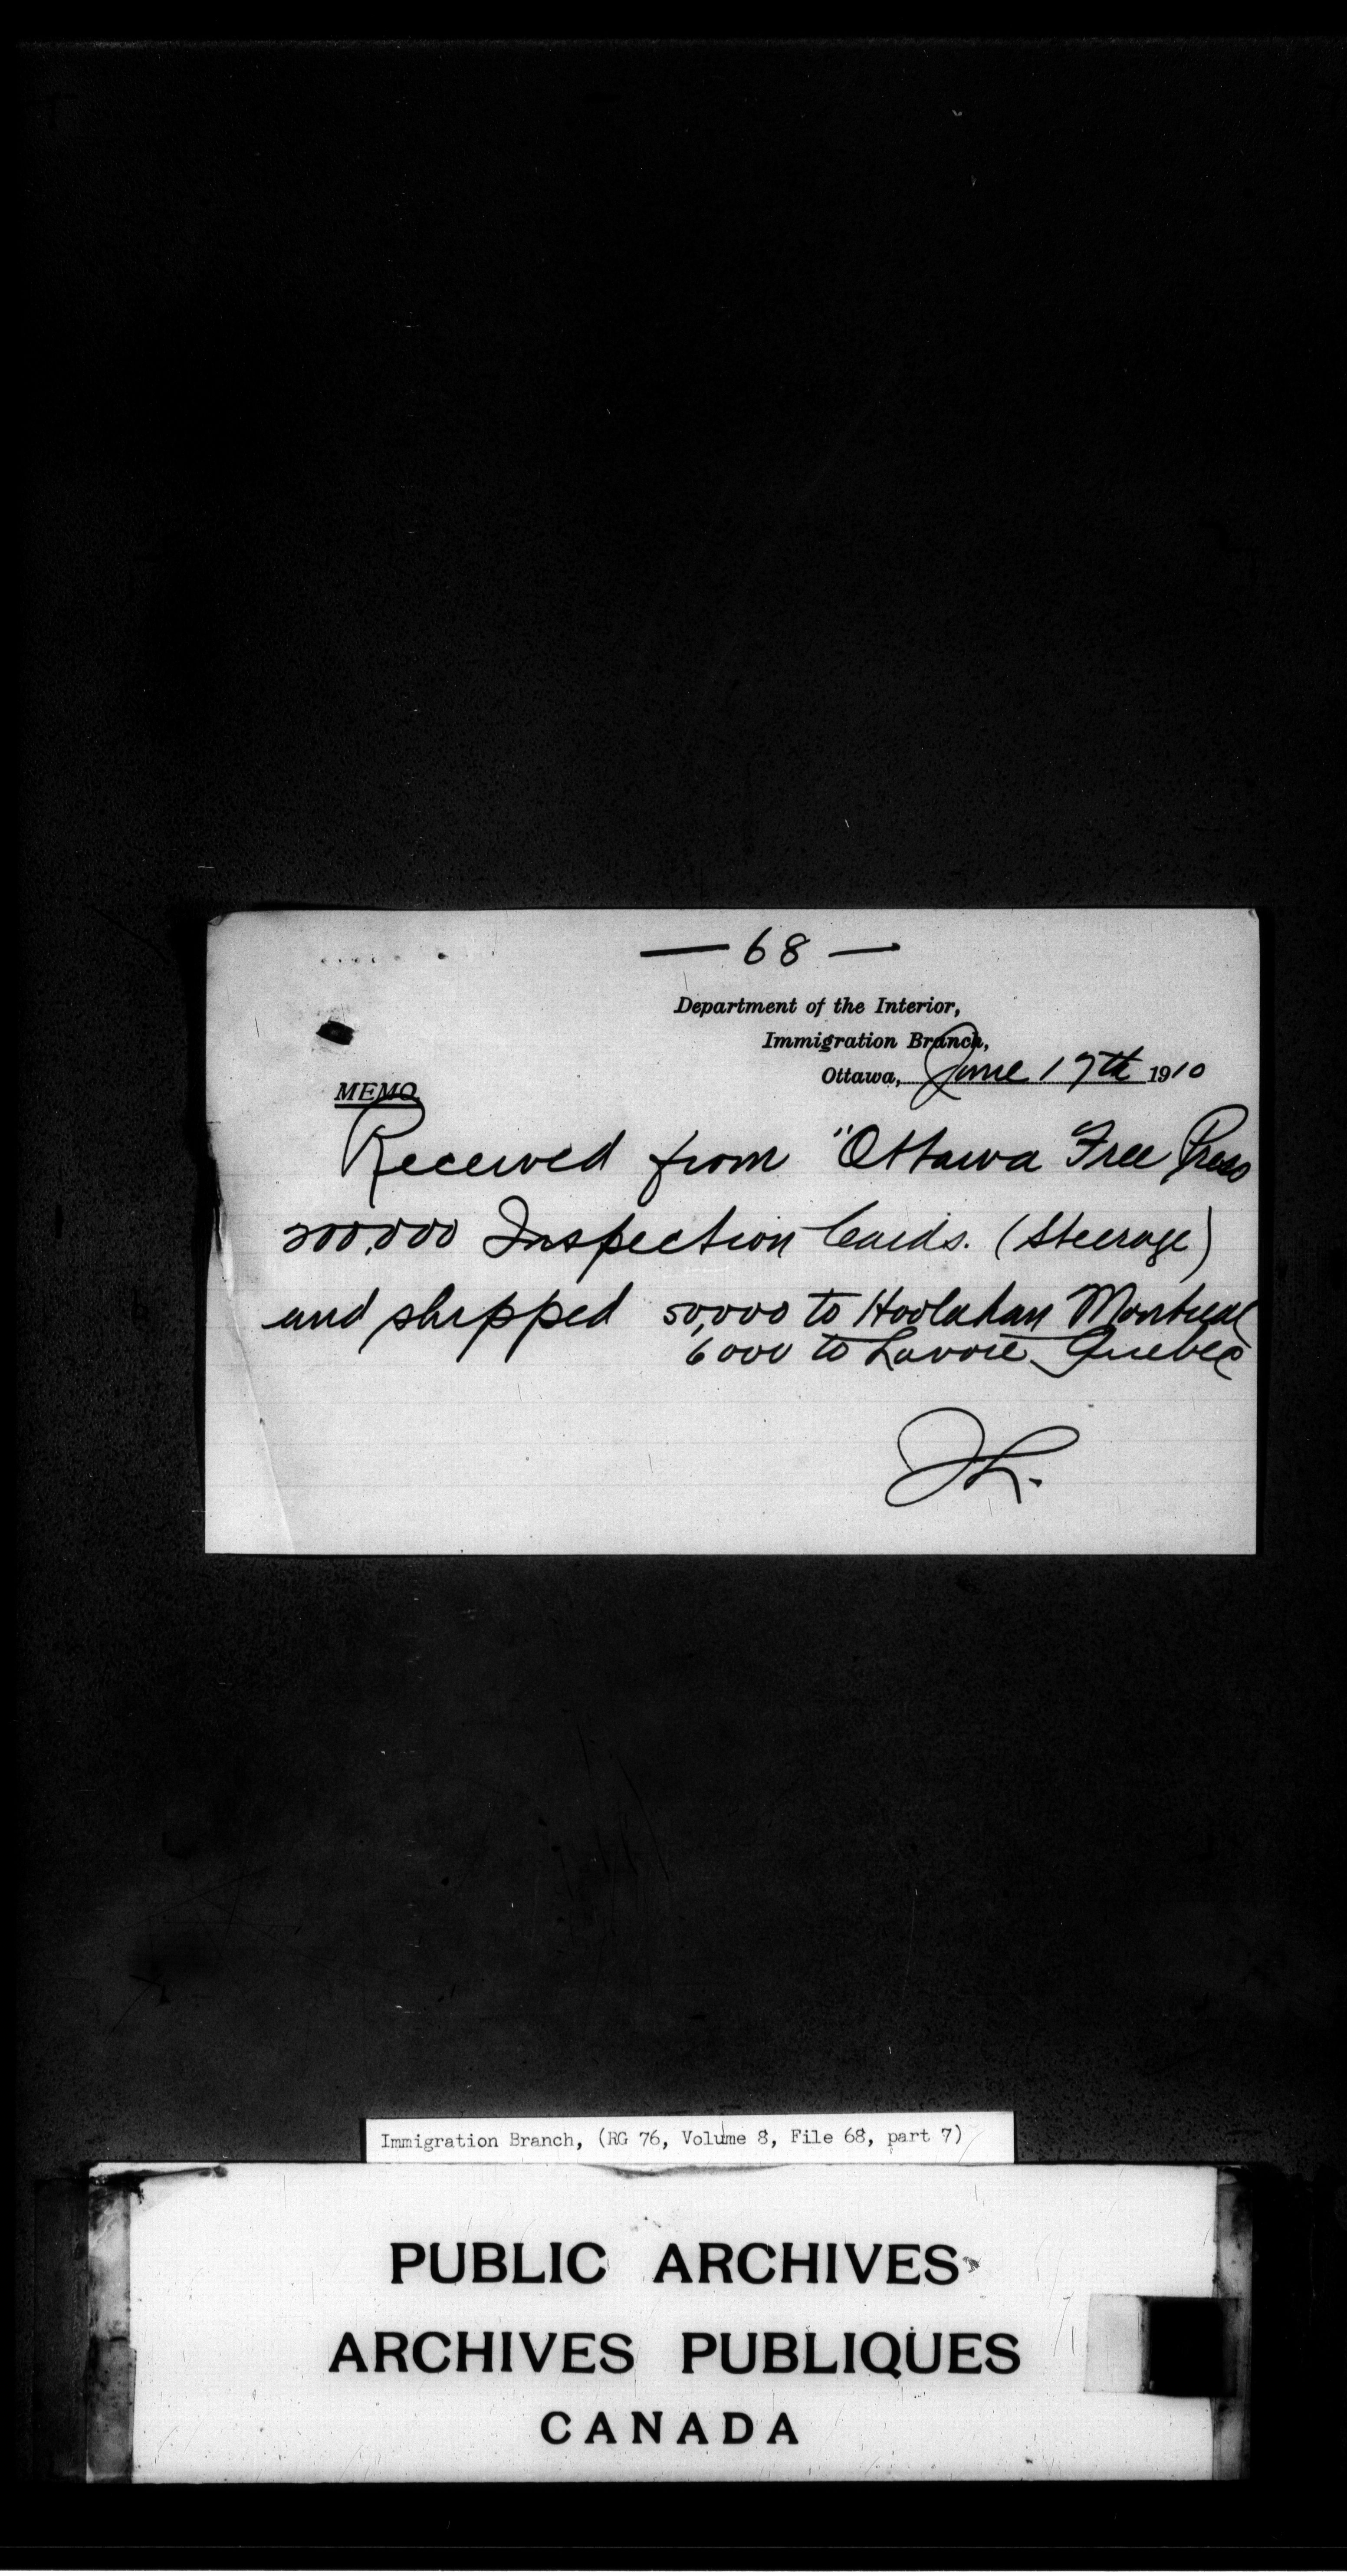 — 68 —
Department of the Interior,
Immigration Branch,
Ottawa, June 17th 1910
MEMO.
Received from "Ottawa Free Press
200,000 Inspection Cards. (Steerage)
and shipped 50,000 to Hoolahan Montreal
6000 to Lavoie Quebec
Immigration Branch, (RG 76, Volume 8, File 68, part 7)
PUBLIC ARCHIVES
ARCHIVES PUBLIQUES
CANADA